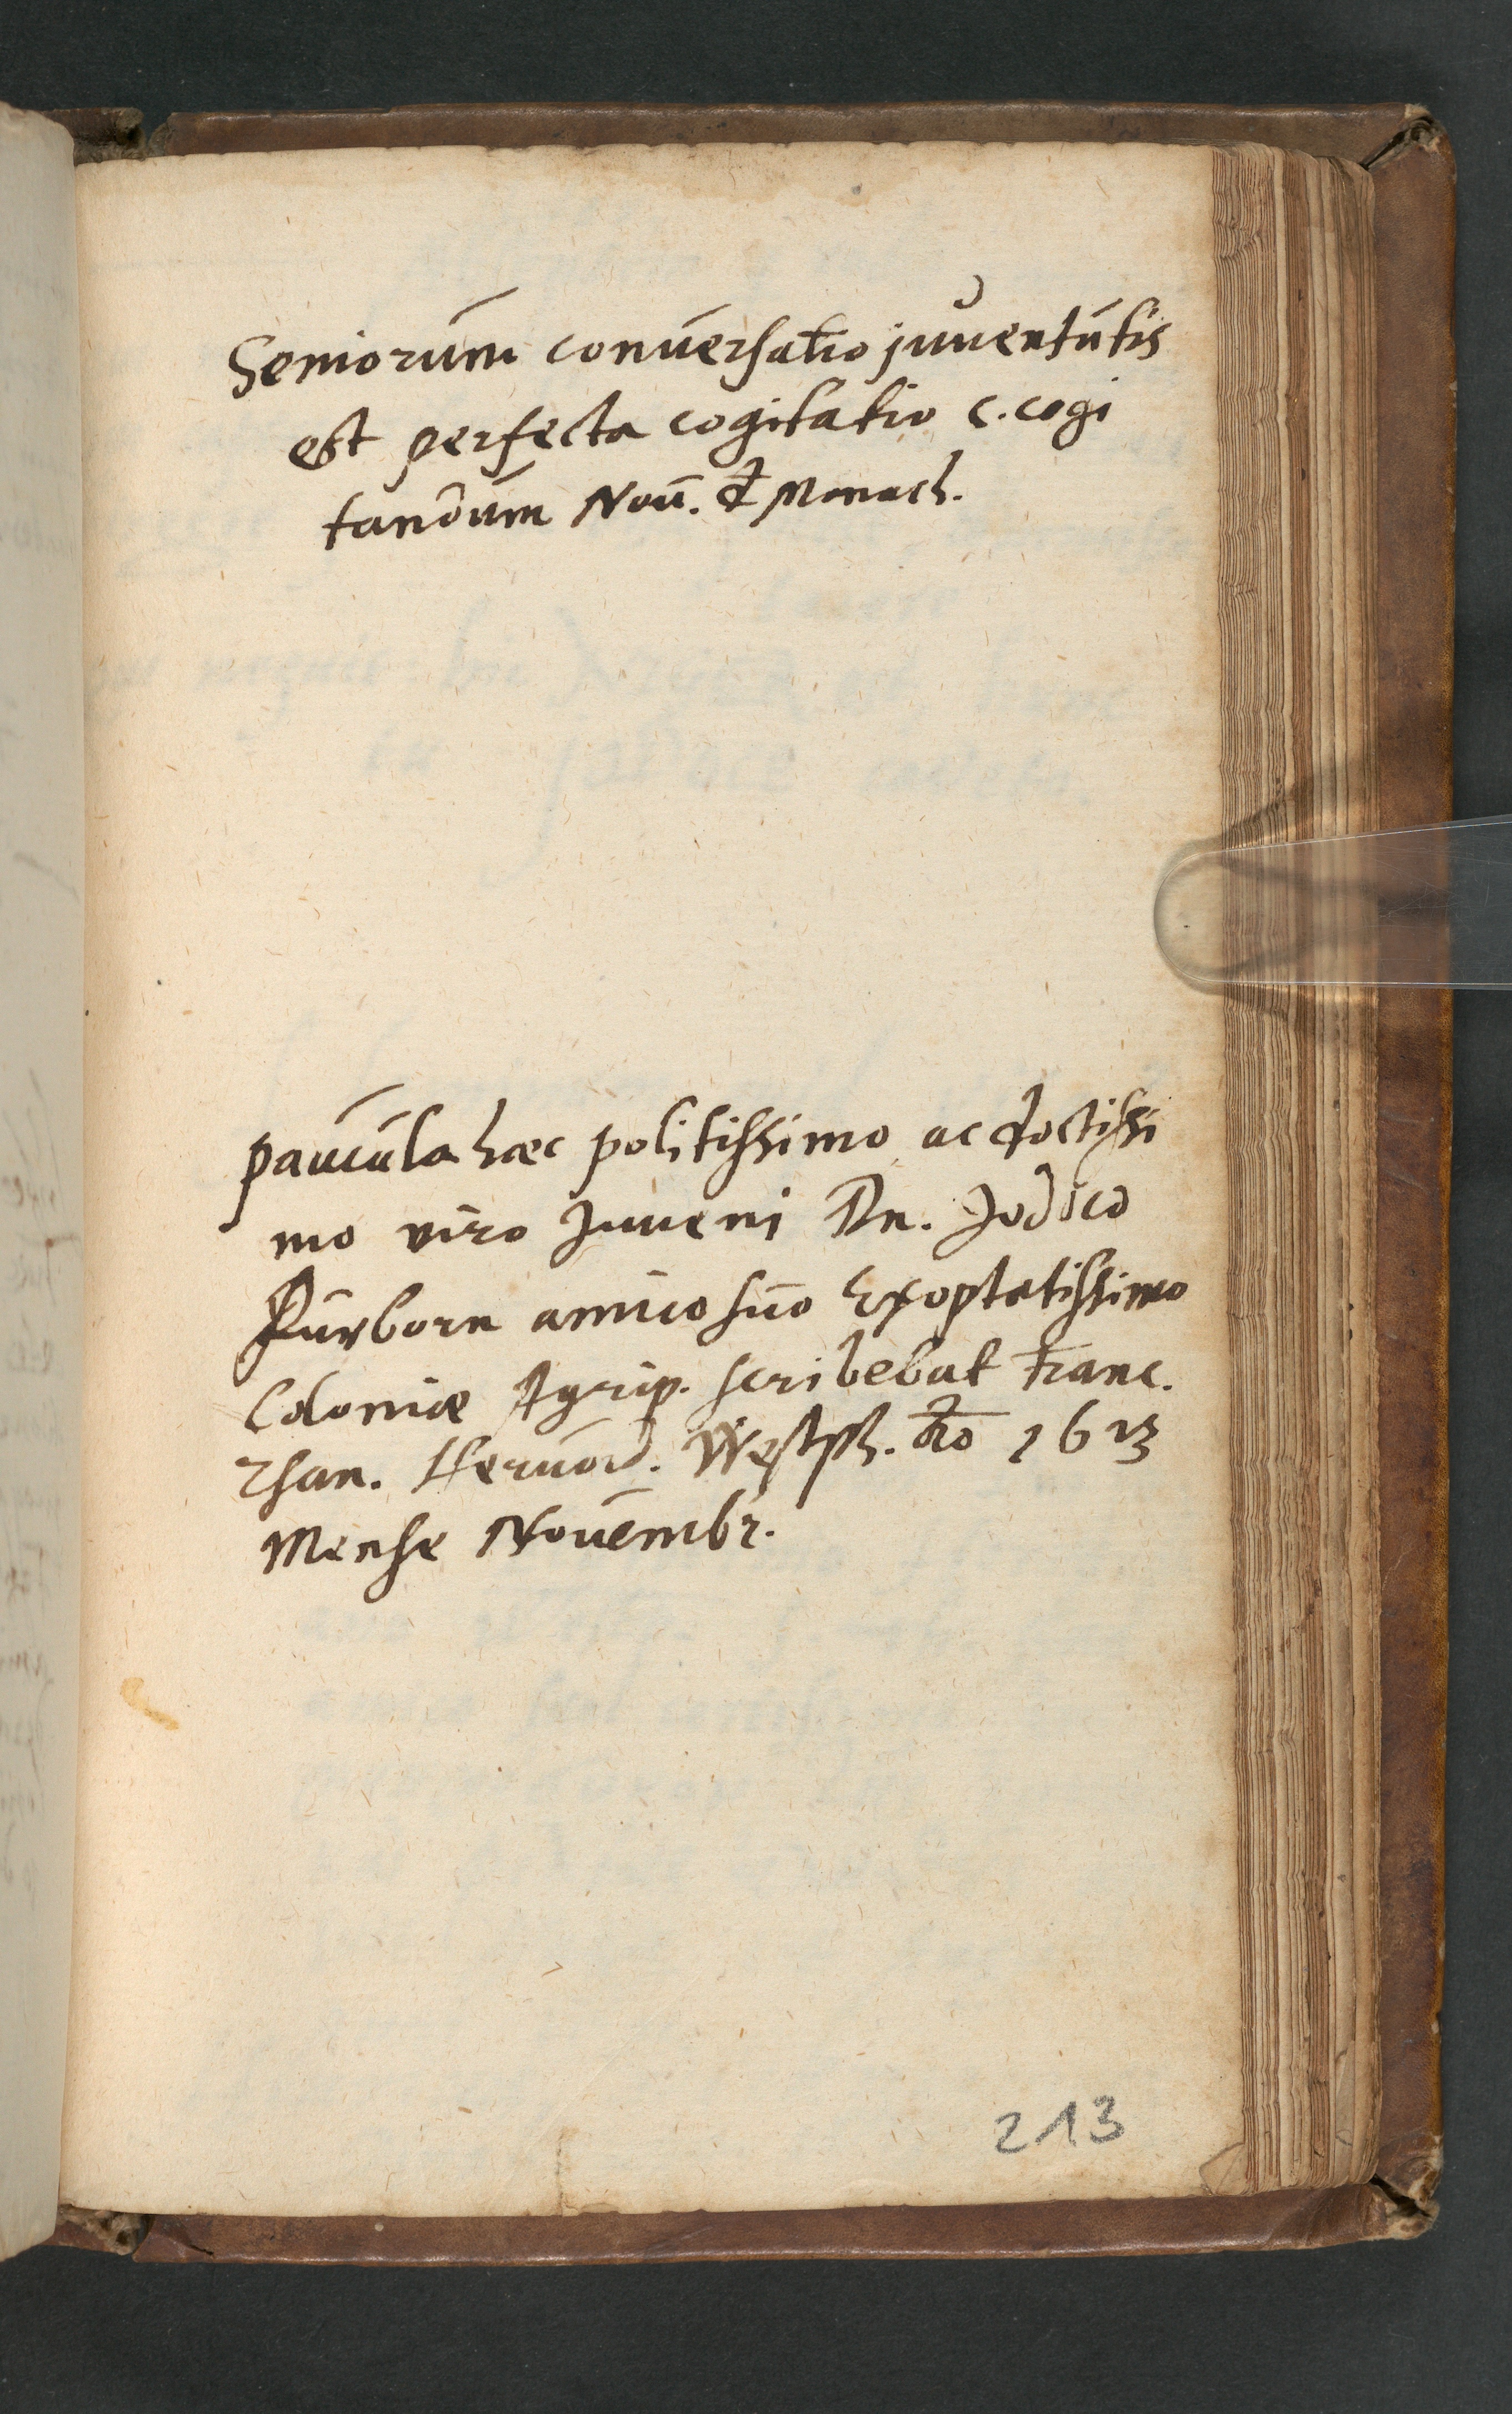 Seniorum conuersatio juuentutis
est perfecta cogitatio c. cogi
tandum Nou. & Monach.
paucula haec politissimo ac doctissi
mo viro Juueni Dn. Jodico
amico suo Exoptatissimo
Coloniae Agrip. scribebat Franc.
Heruord. Westph. Ao 1613
Mense Nouembr.
213